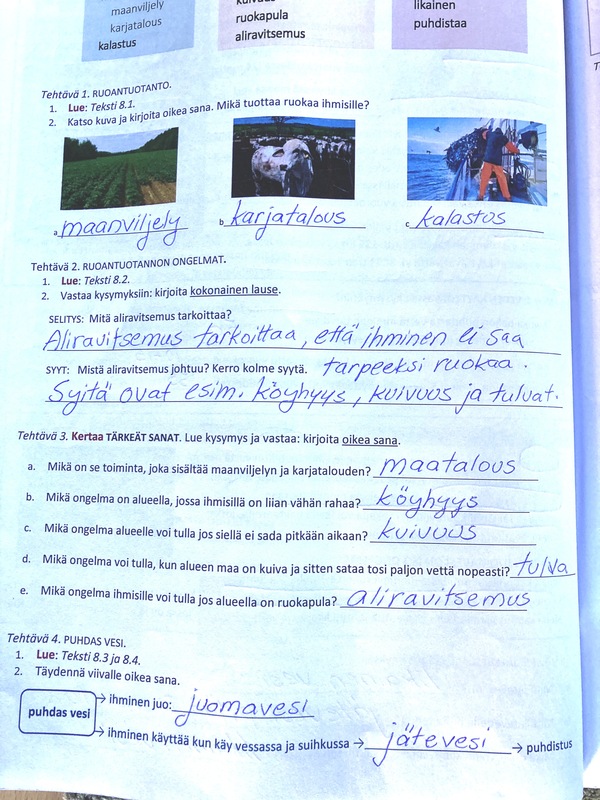 maanviljely
karjatalous
kalastus
ruokapula
aliravitsemus
likainen
puhdistaa
Tehtävä 1. RUOANTUOTANTO.
1. Lue: Teksti 8.1.
2. Katso kuva ja kirjoita oikea sana. Mikä tuottaa ruokaa ihmisille?
a. maanviljely b. karjatalous c. kalastus
Tehtävä 2. RUOANTUOTANNON ONGELMAT.
1. Lue: Teksti 8.2.
2. Vastaa kysymyksiin: kirjoita kokonainen lause.
SELITYS: Mitä aliravitsemus tarkoittaa?
Aliravitsemus tarkoittaa, että ihminen ei saa
tarpeeksi ruokaa.
SYYT: Mistä aliravitsemus johtuu? Kerro kolme syytä.
Syitä ovat esim. köyhyys, kuivuus ja tulvat.
Tehtävä 3. Kertaa TÄRKEÄT SANAT. Lue kysymys ja vastaa: kirjoita oikea sana.
a. Mikä on se toiminta, joka sisältää maanviljelyn ja karjatalouden? maatalous
b. Mikä ongelma on alueella, jossa ihmisillä on liian vähän rahaa? köyhyys
c. Mikä ongelma alueelle voi tulla jos siellä ei sada pitkään aikaan? kuivuus
d. Mikä ongelma voi tulla, kun alueen maa on kuiva ja sitten sataa tosi paljon vettä nopeasti? tulva
e. Mikä ongelma ihmisille voi tulla jos alueella on ruokapula? aliravitsemus
Tehtävä 4. PUHDAS VESI.
1. Lue: Teksti 8.3 ja 8.4.
2. Täydennä viivalle oikea sana.
puhdas vesi
→ ihminen juo: juomavesi
→ ihminen käyttää kun käy vessassa ja suihkussa → jätevesi → puhdistus